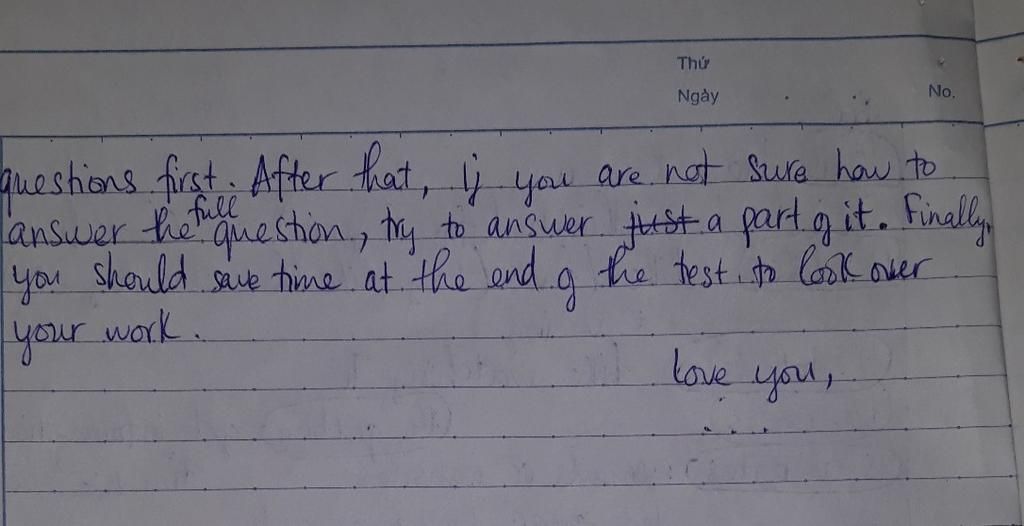 Thứ
Ngày
No.
questions first. After that, if you are not sure how to
answer the full question, try to answer ~~just~~ a part of it. Finally,
you should save time at the end of the test to look over
your work.
love you,
....